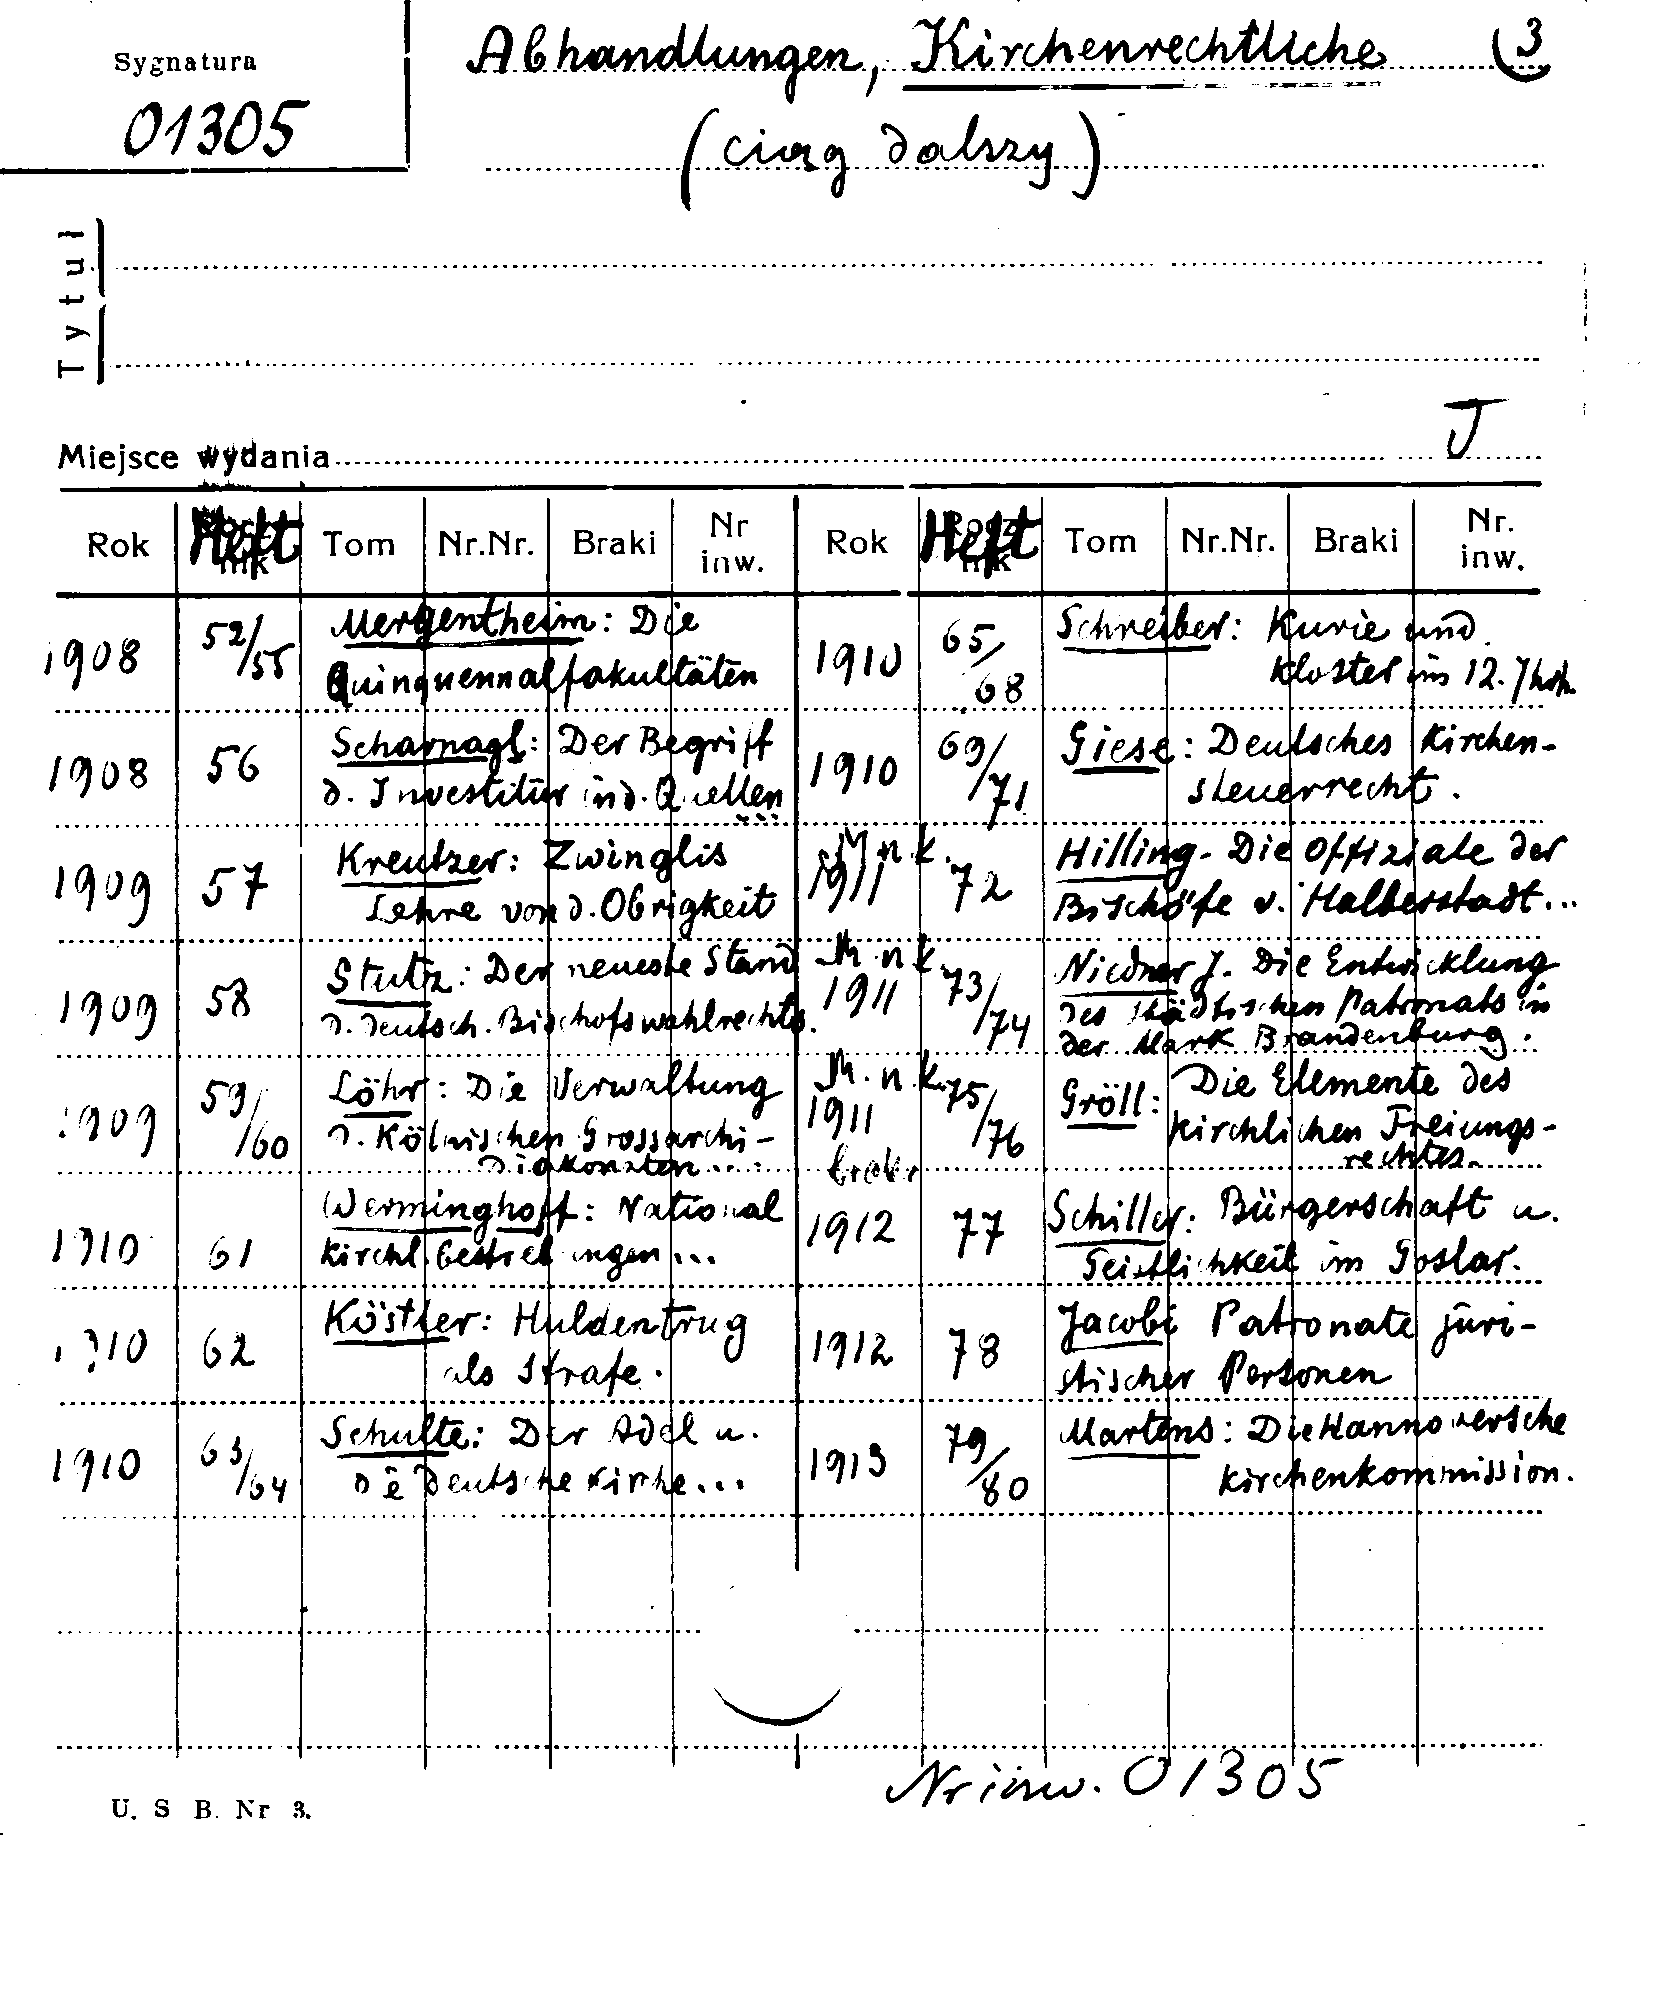 Sygnatura
01305
Abhandlungen, Kirchenrechtliche 3
(ciąg dalszy)
Tytuł
J
Miejsce wydania
Rok Heft Tom Nr.Nr. Braki Nr inw. Rok Heft Tom Nr.Nr. Braki Nr. inw.
1908 52/55 Mergentheim: Die
Quinquennalfakultäten
1908 56 Scharnagl: Der Begriff
d. Investitur in d. Quellen
1909 57 Kreutzer: Zwinglis
Lehre von d. Obrigkeit
1909 58 Stutz: Der neueste Stand
d. deutsch. Bischofswahlrechts.
1909 59/60 Löhr: Die Verwaltung
d. Kölnischen Grossarchi-
diakonaten...
1910 61 Werminghoff: National
kirchl. bestrebungen...
1910 62 Köstler: Huldentrug
als Strafe.
1910 63/64 Schulte: Der Adel u.
die deutsche Kirche...
1910 65/68 Schreiber: Kurie und
Kloster im 12. Jhrh.
1910 69/71 Giese: Deutsches Kirchen-
steuerrecht.
M. n. k.
1911 72 Hilling - Die Offiziale der
Bischöfe v. Halberstadt...
M. n. k.
1911 73/74 Niedner J. Die Entwicklung
des städtischen Patronats in
der Mark Brandenburg.
M. n. k.
1911 75/76 Gröll: Die Elemente des
kirchlichen Freiungs-
rechtes.
brak
1912 77 Schiller: Bürgerschaft u.
Geistlichkeit im Goslar.
1912 78 Jacobi Patronate juri-
stischer Personen
1913 79/80 Martens: Die Hannoversche
Kirchenkommission.
Nr inw. 01305
U. S B. Nr 3.